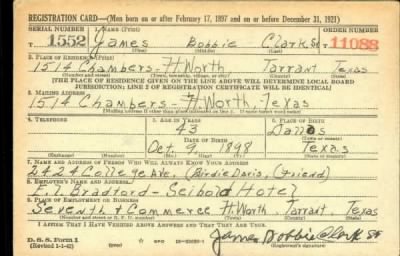 REGISTRATION CARD—(Men born on or after February 17, 1897 and on or before December 31, 1921)
SERIAL NUMBER 1. NAME (Print) ORDER NUMBER
1552 James Bobbie Clark Sr 11088
(First) (Middle) (Last)
2. PLACE OF RESIDENCE (Print)
1514 Chambers - Ft Worth Tarrant Texas
(Number and street) (Town, township, village, or city) (County) (State)
[THE PLACE OF RESIDENCE GIVEN ON THE LINE ABOVE WILL DETERMINE LOCAL BOARD
JURISDICTION; LINE 2 OF REGISTRATION CERTIFICATE WILL BE IDENTICAL]
3. MAILING ADDRESS
1514 Chambers - Ft. Worth, Texas
[Mailing address if other than place indicated on line 2. If same insert word same]
4. TELEPHONE 5. AGE IN YEARS 6. PLACE OF BIRTH
43 Dallas
DATE OF BIRTH (Town or county)
Oct. 9, 1898 Texas
(Exchange) (Number) (Mo.) (Day) (Yr.) (State or country)
7. NAME AND ADDRESS OF PERSON WHO WILL ALWAYS KNOW YOUR ADDRESS
2424 College Ave. (Birdie Davis, (Friend)
8. EMPLOYER'S NAME AND ADDRESS
Bradford - Seibold Hotel
9. PLACE OF EMPLOYMENT OR BUSINESS
Seventh + Commerce Ft. Worth, Tarrant, Texas
(Number and street or R. F. D. number) (Town) (County) (State)
I AFFIRM THAT I HAVE VERIFIED ABOVE ANSWERS AND THAT THEY ARE TRUE.
D. S. S. Form 1 James Bobbie Clark Sr
(Revised 1-1-42) GPO (Registrant's signature)